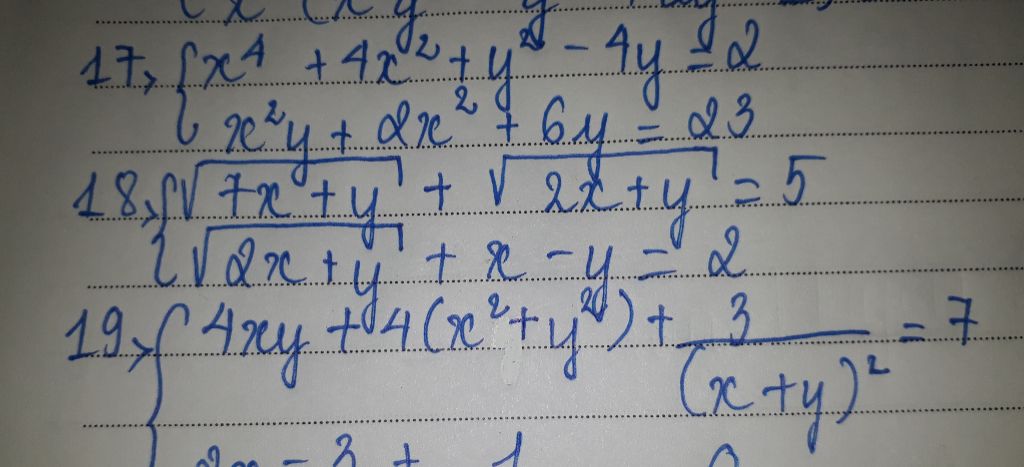 17, { x⁴ + 4x² + y² - 4y = 2
x²y + 2x² + 6y = 23
18, { √(7x + y) + √(2x + y) = 5
√(2x + y) + x - y = 2
19, { 4xy + 4(x² + y²) + 3/(x + y)² = 7